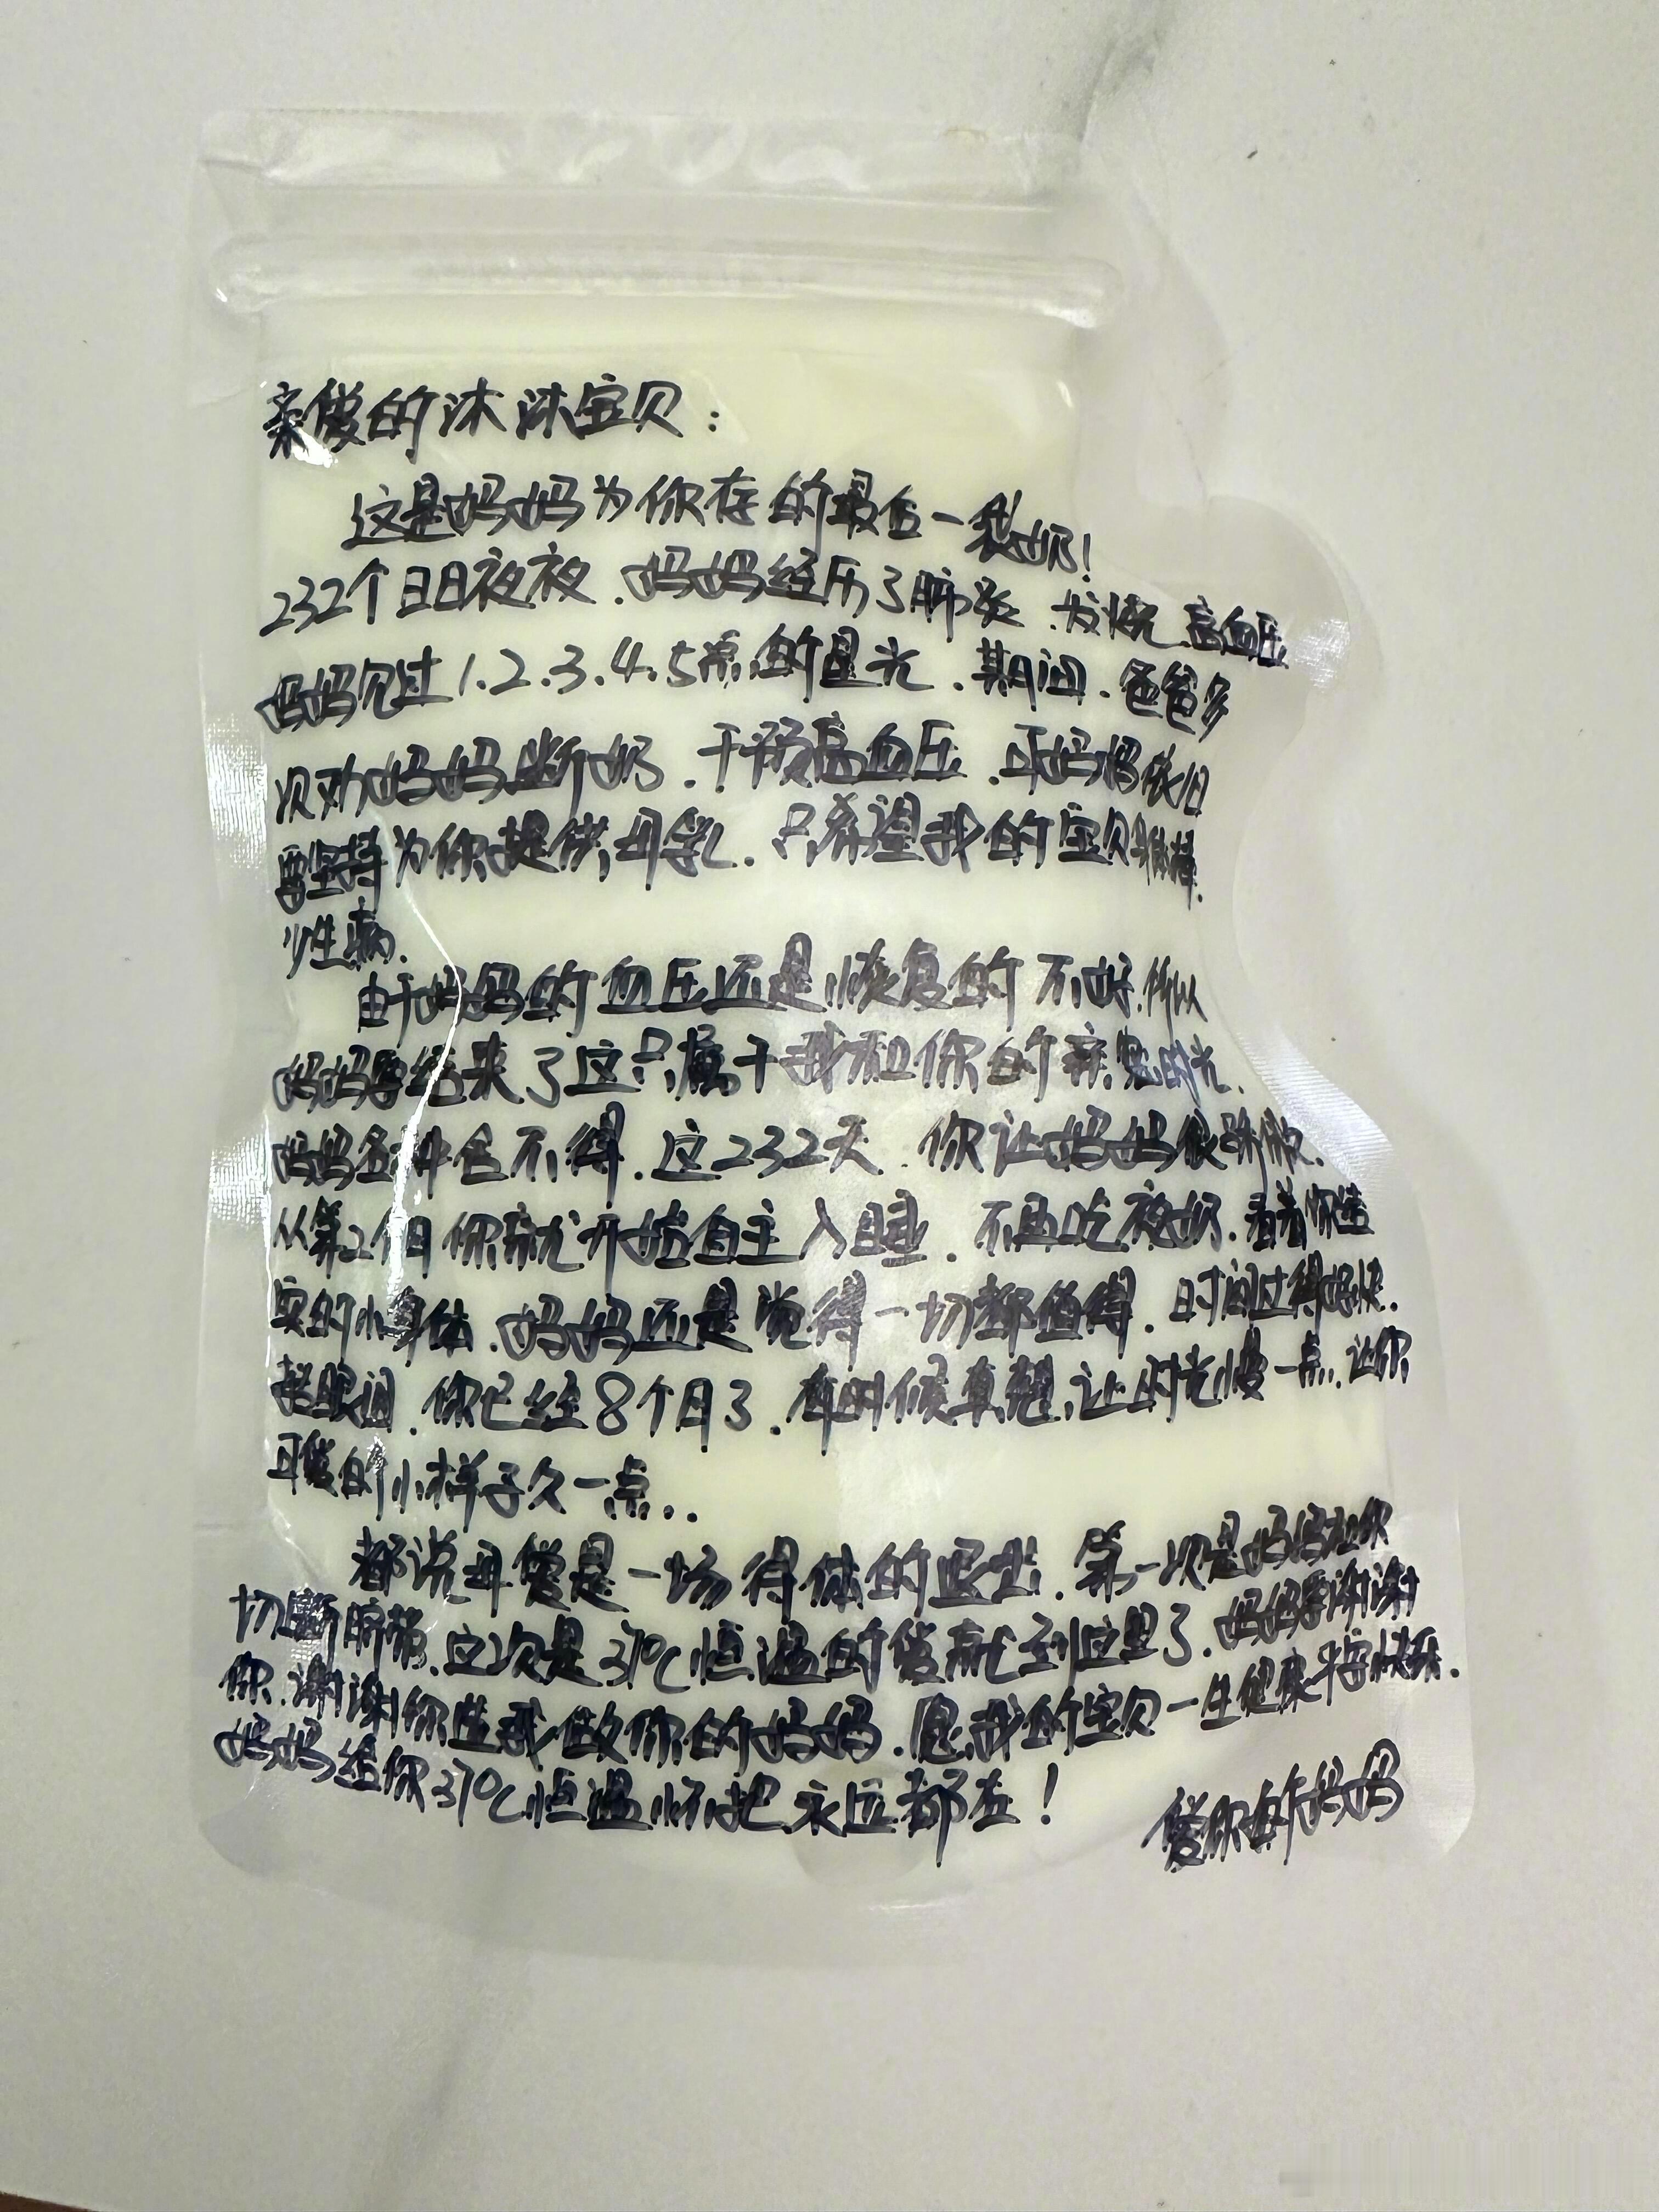 亲爱的沐沐宝贝：
这是妈妈为你存的最后一袋奶！
232个日日夜夜.妈妈经历了肺炎.发烧.高血压
妈妈见过1.2.3.4.5点的星光.期间.爸爸多
次劝妈妈断奶.干预高血压.可妈妈依旧
要坚持为你提供母乳.只希望我的宝贝棒棒.
少生病.
由于妈妈的血压还是恢复的不好.所以
妈妈要结束了这只属于我和你的亲密时光.
妈妈各种舍不得.这232天.你让妈妈很骄傲.
从第2个月你就开始自主入睡.不再吃夜奶.看着你结
实的小身体.妈妈还是觉得一切都值得.时间过得好快.
眨眼间.你已经8个月了.有时候真想让时光慢一点.让你
可爱的小样子久一点..
都说母爱是一场得体的退出.第一次是妈妈和你
切断脐带.这次是37℃恒温的爱就到这里了.妈妈要谢谢
你.谢谢你选我做你的妈妈.愿我的宝贝一生健康平安快乐.
妈妈给你37℃恒温怀抱永远都在！
爱你的妈妈